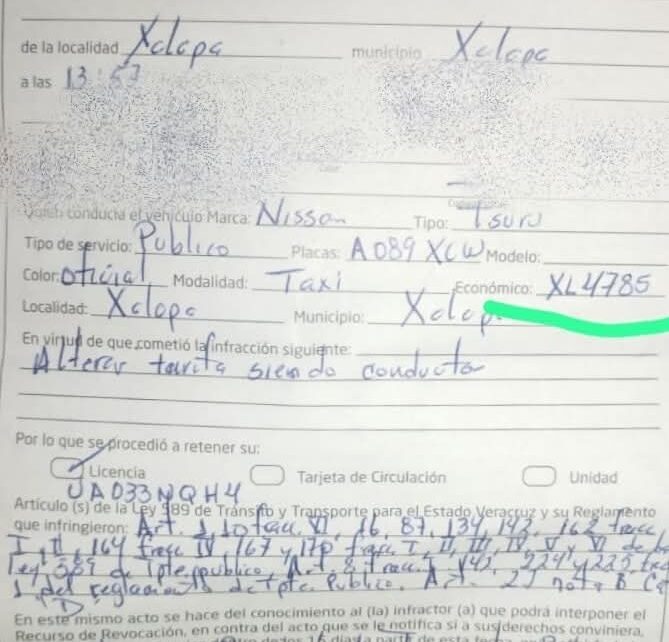 de la localidad Xalapa municipio Xalapa
a las 13:53
conducía el vehículo Marca: Nissan Tipo: Tsuru
Tipo de servicio: Publico Placas: A089 XCW Modelo:
Color: oficial Modalidad: Taxi Económico: XL4785
Localidad: Xalapa Municipio: Xalap
En virtud de que cometió la infracción siguiente:
Alterar tarifa siendo conductor
Por lo que se procedió a retener su:
Licencia Tarjeta de Circulación Unidad
UA033NQH4
Artículo (s) de la Ley 589 de Tránsito y Transporte para el Estado Veracruz y su Reglamento
que infringieron: Art. 1, 10 fracc. VI, 16, 87, 134, 142, 162 fracc
I, II, 164 fracc IV, 167 y 170 fracc I, II, III, IV, V y VI de la
Ley 589 de Tpte publico Art. 8 fracc 1, 142, 224 y 225
del reglamento de tpte. Publico. Art. 25
En este mismo acto se hace del conocimiento al (la) infractor (a) que podrá interponer el
Recurso de Revocación, en contra del acto que se le notifica si a sus derechos conviniera,